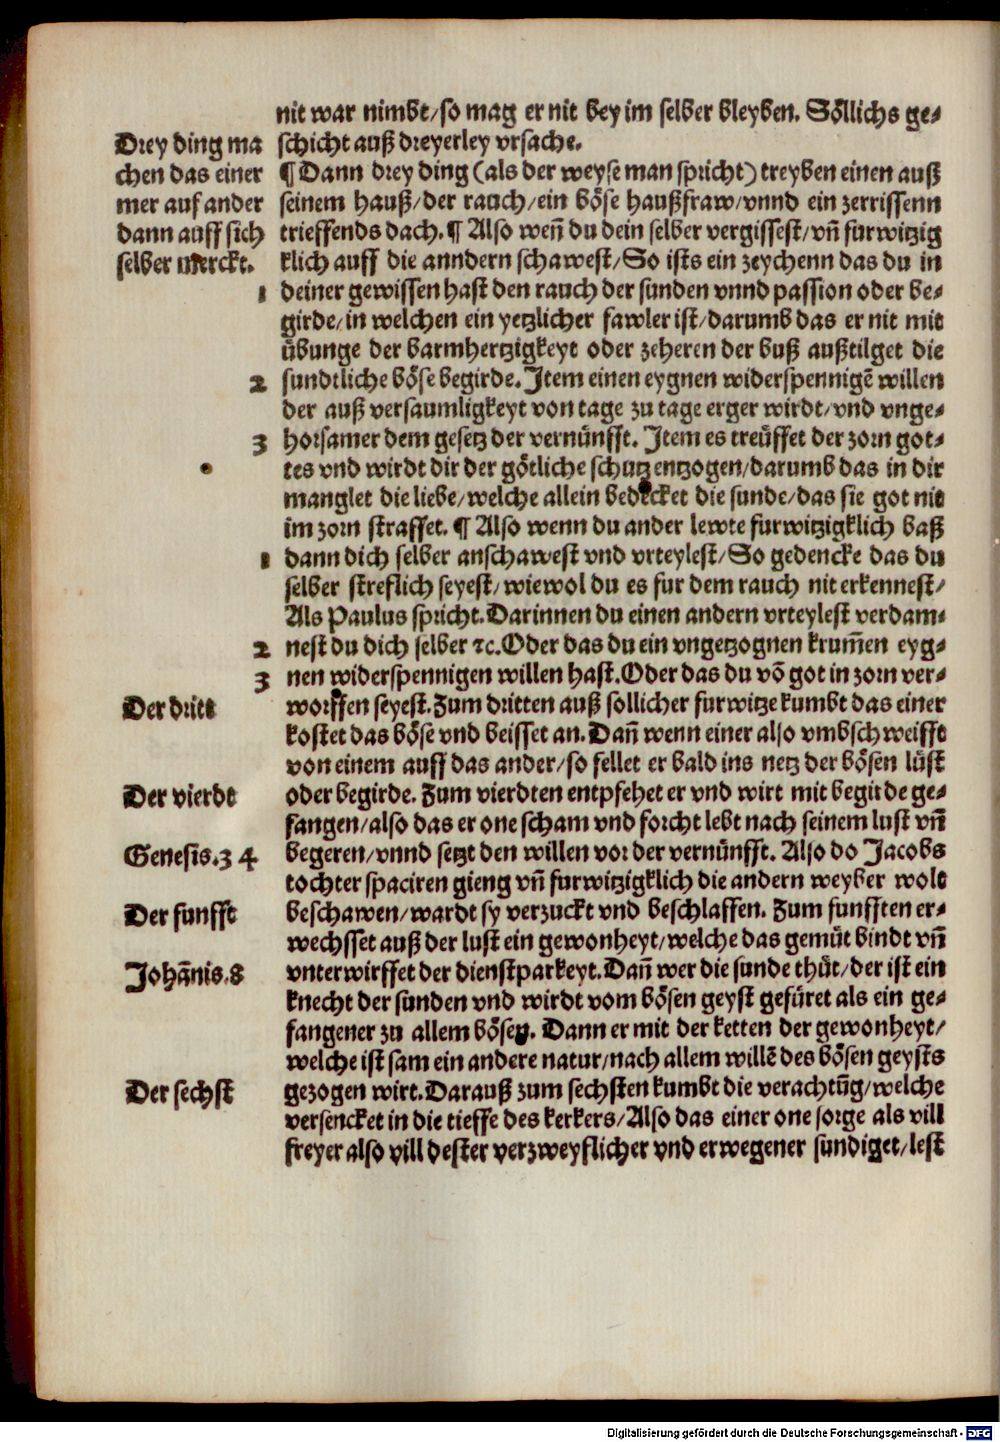 nit war nimbt/so mag er nit bey im selber bleyben. Söllichs ge⸗
schicht auß dreyerley vrsache.
Drey ding ma
chen das einer
mer auf ander
dann auff sich
selber merckt.
¶ Dann drey ding (als der weyse man spricht) treyben einen auß
seinem hauß/der rauch/ein böse haußfraw/vnnd ein zerrissenn
trieffends dach. ¶ Also weñ du dein selber vergissest/vñ furwitzig
klich auff die anndern schawest/So ists ein zeychenn das du in
1
deiner gewissen hast den rauch der sunden vnnd passion oder be⸗
girde/in welchen ein yetzlicher fawler ist/darumb das er nit mit
übunge der barmhertzigkeyt oder zeheren der buß außtilget die
2
sundtliche böse begirde. Item einen eygnen widerspennigē willen
der auß versaumligkeyt von tage zu tage erger wirdt/vnd vnge⸗
3
horsamer dem gesetz der vernünfft. Item es treüffet der zorn got⸗
tes vnd wirdt dir der götliche schutz entzogen/darumb das in dir
manglet die liebe/welche allein bedecket die sunde/das sie got nit
im zorn straffet. ¶ Also wenn du ander lewte furwitzigklich baß
1
dann dich selber anschawest vnd vrteylest/So gedencke das du
selber streflich seyest/wiewol du es fur dem rauch nit erkennest/
Als Paulus spricht. Darinnen du einen andern vrteylest verdam⸗
2
nest du dich selber ⁊c. Oder das du ein vngetzognen krum̄en eyg⸗
3
nen widerspennigen willen hast. Oder das du vō got in zorn ver⸗
Der dritt
worffen seyest. Zum dritten auß sollicher furwitze kumbt das einer
kostet das böse vnd beisset an. Dañ wenn einer also vmbschweifft
von einem auff das ander/so fellet er bald ins netz der bösen lüst
Der vierdt
oder begirde. Zum vierdten entpfehet er vnd wirt mit begirde ge⸗
fangen/also das er one scham vnd forcht lebt nach seinem lust vñ
Genesis.34
begeren/vnnd setzt den willen vor der vernünfft. Also do Jacobs
tochter spaciren gieng vñ furwitzigklich die andern weyber wolt
Der funfft
beschawen/wardt sy verzuckt vnd beschlaffen. Zum funfften er⸗
wechsset auß der lust ein gewonheyt/welche das gemüt bindt vñ
Johānis.8
vnterwirffet der dienstparkeyt. Dañ wer die sunde thüt/der ist ein
knecht der sunden vnd wirdt vom bösen geyst gefüret als ein ge⸗
fangener zu allem bösen. Dann er mit der ketten der gewonheyt/
welche ist sam ein andere natur/nach allem willē des bösen geysts
Der sechst
gezogen wirt. Darauß zum sechsten kumbt die verachtūg/welche
versencket in die tieffe des kerkers/Also das einer one sorge als vill
freyer also vill dester verzweyflicher vnd erwegener sundiget/lest
Digitalisierung gefördert durch die Deutsche Forschungsgemeinschaft - DFG